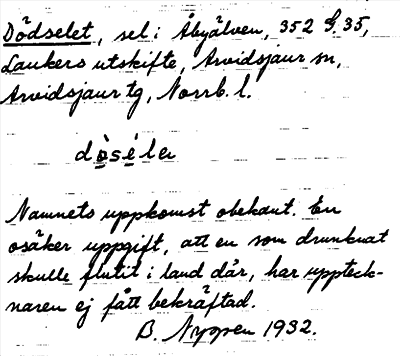 Dödselet, sel i Åbyälven, 352 S. 35,
Laukers utskifte, Arvidsjaur sn,
Arvidsjaur tg, Norrb. l.
dòsélɐ
Namnets uppkomst obekant. En
osäker uppgift, att en som drunknat
skulle flutit i land där, har uppteck-
naren ej fått bekräftad.
B. Nyppen 1932.